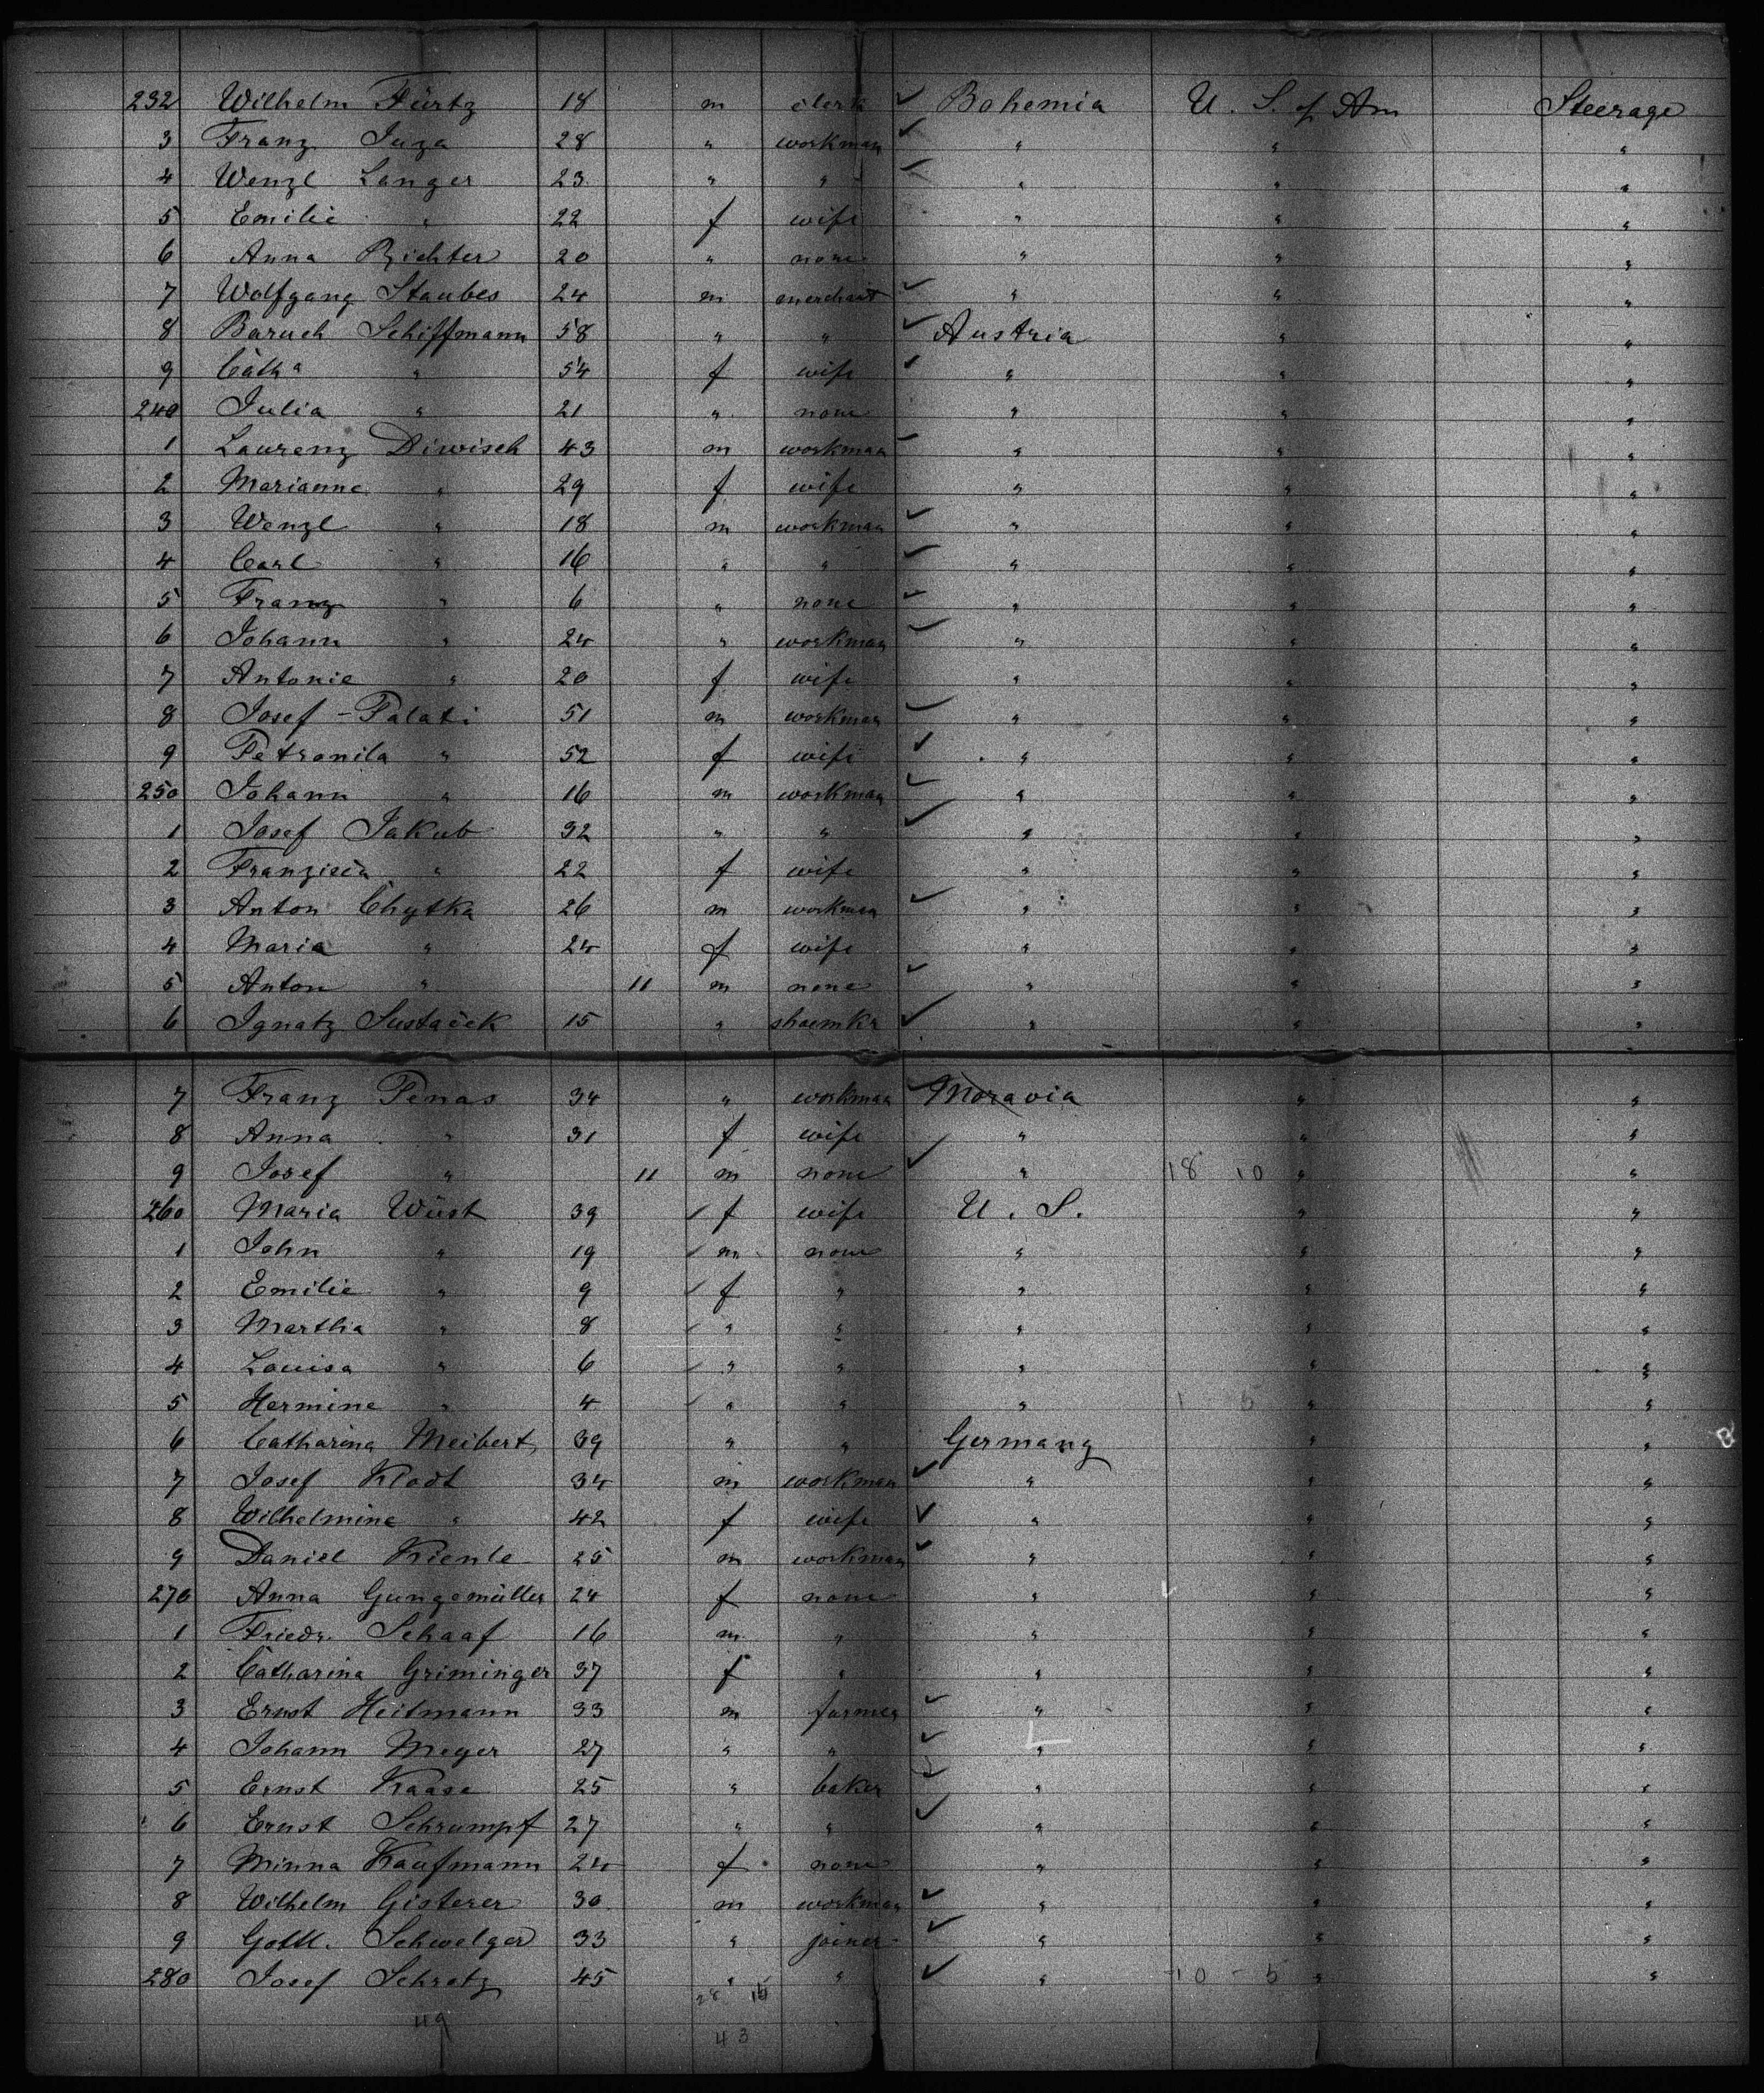 232 Wilhelm Fürtz 18 m clerk ✓ Bohemia U. S. of Am Steerage
3 Franz Juza 28 " workman ✓ " " "
4 Wenzl Langer 23 " " ✓ " " "
5 Emilie " 22 f wife " " "
6 Anna Richter 20 " none " " "
7 Wolfgang Staubes 24 m merchant ✓ " " "
8 Baruch Schiffmann 58 " " ✓ Austria " "
9 Cath a " 54 f wife ✓ " " "
240 Julia " 21 " none " " "
1 Laurenz Diwisch 43 m workman ✓ " " "
2 Marianne " 29 f wife " " "
3 Wenzl " 18 m workman ✓ " " "
4 Carl " 16 " " ✓ " " "
5 Franz " 6 " none ✓ " " "
6 Johann " 24 " workman ✓ " " "
7 Antonie " 20 f wife " " "
8 Josef - Palati 51 m workman ✓ " " "
9 Petronila " 52 f wife ✓ " " "
250 Johann " 16 m workman ✓ " " "
1 Josef Jakub 32 " " ✓ " " "
2 Franzisca " 22 f wife " " "
3 Anton Chytka 26 m workman ✓ " " "
4 Maria " 24 f wife " " "
5 Anton " 11 m none ✓ " " "
6 Ignatz Sustaček 15 " shoemkr ✓ " " "
7 Franz Penas 34 " workman ✓ Moravia " "
8 Anna " 31 f wife " " "
9 Josef " 11 m none ✓ " 18 10 " "
260 Maria Wüst 39 ✓ f wife U. S. " "
1 John " 19 ✓ m none " " "
2 Emilie " 9 ✓ f " " " "
3 Martha " 8 ✓ " " " " "
4 Louisa " 6 ✓ " " " " "
5 Hermine " 4 ✓ " " " 1 5 " "
6 Catharina Meibert 39 " " Germany " "
7 Josef Klodt 34 m workman ✓ " " "
8 Wilhelmine " 42 f wife ✓ " " "
9 Daniel Kienle 25 m workman ✓ " " "
270 Anna Gungemüller 24 f none " " "
1 Friedr. Schaaf 16 m " " " "
2 Catharina Griminger 37 f " " " "
3 Ernst Heitmann 33 m farmer ✓ " " "
4 Johann Meyer 27 " " ✓ " " "
5 Ernst Kaase 25 " baker ✓ " " "
6 Ernst Schrumpf 27 " " ✓ " " "
7 Minna Kaufmann 24 f none " " "
8 Wilhelm Gisterer 30 m workman ✓ " " "
9 Gottl. Schwelger 33 " joiner ✓ " " "
280 Josef Schretz 45 " " ✓ " 10 - 5 " "
49
43